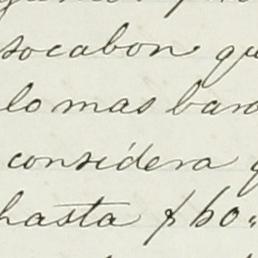 socabon qu
lo mas bara
considera q
hasta $ 60"